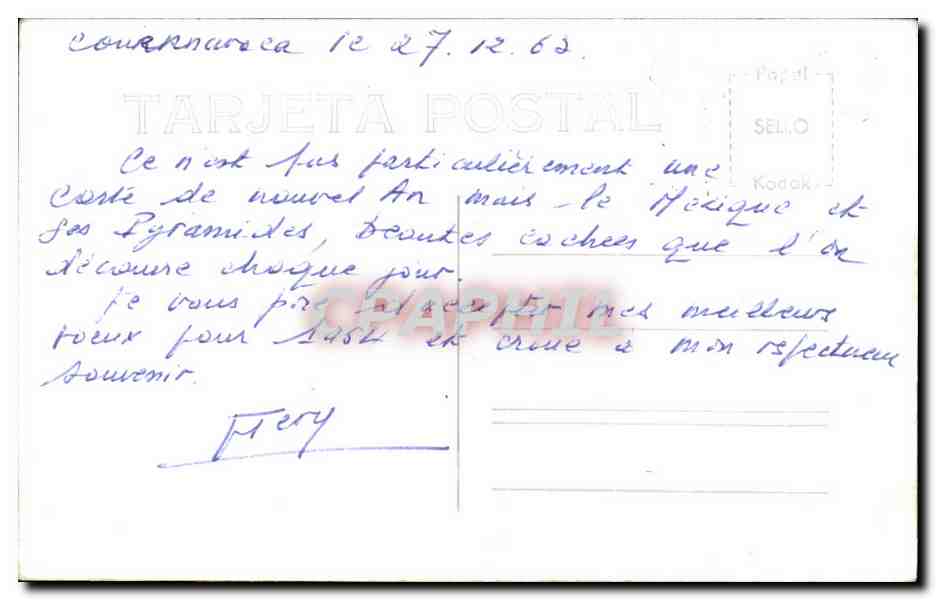 le 27.12.63.
Papel
TARJETA POSTAL
SELLO
Ce n'est pas particulièrement une
Kodak
Carte de nouvel An mais le Mexique et
ses Pyramides, beautes cachees que l'on
découvre chaque jour.
Je vous prie d'accepter mes meilleurs
CPAPHIL
voeux pour 1964 et croire à mon respectueux
souvenir.